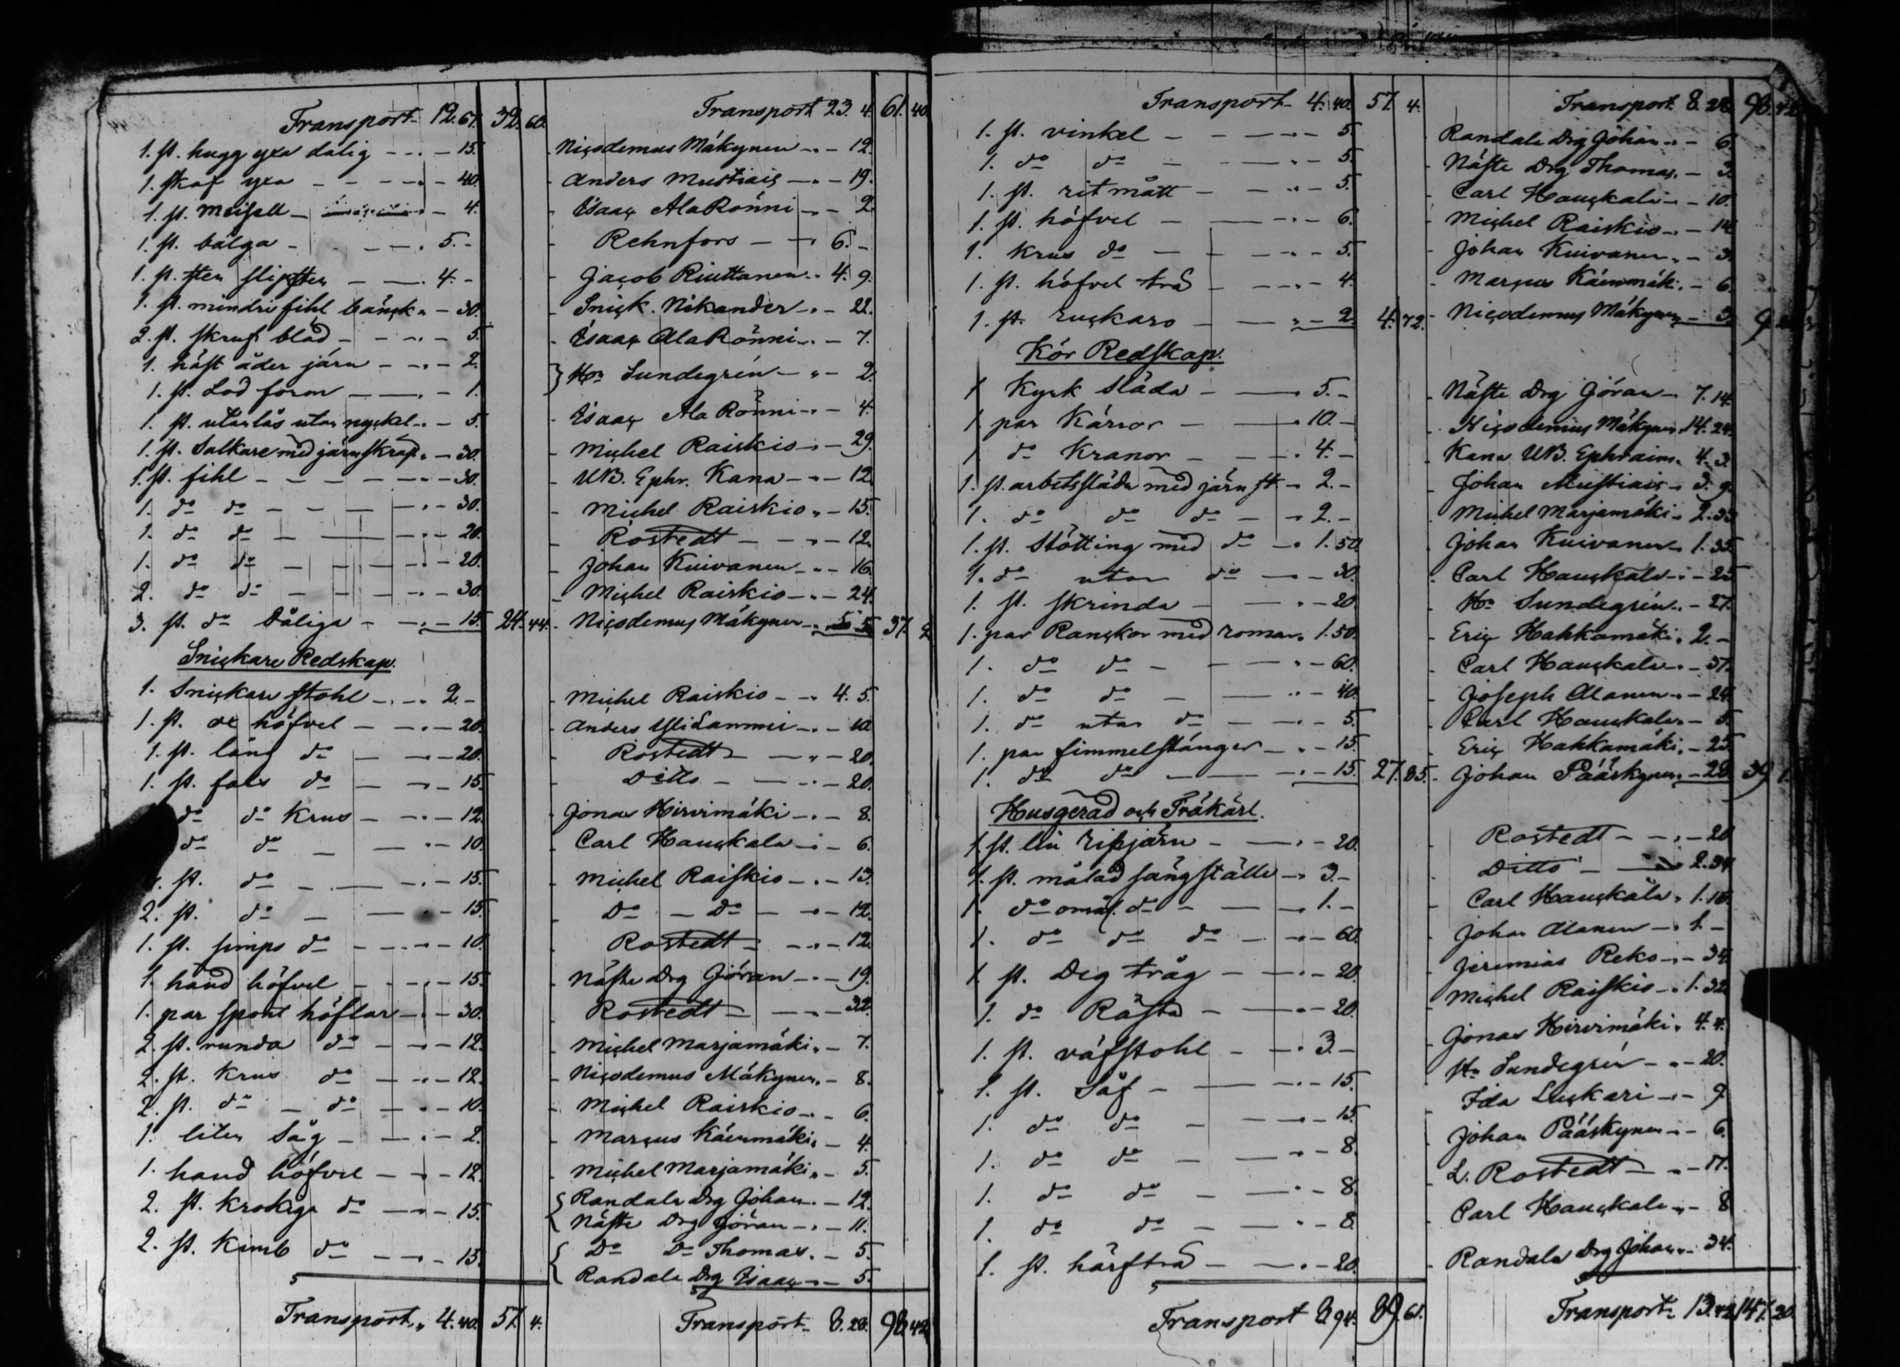 Transport 12.67. 32.60.
1. st. hugg yxa dålig - 15.
1. skaf yxa - 40.
1. st. meisell - 4.
1. st. bälga - 5.-
1. st. sten - 4.-
1. st. mindre fihl bänck - 30.
2. st. skruf blad - 5.
1. häst åder järn - 2.
1. st. Lod form - 1.
1. st. utan nyckel - 5.
1. st. med järnskrap - 30.
1. st. fihl - 30.
1. do do - 30.
1. do do - 20.
1. do do - 20.
2. do do - 30.
3. st. do Dåliga - 15. 24.44.
Snickare Redskap.
1. Snickare stohl - 2.-
1. st. ox höfvel - 20.
1. st. lång do - 20.
1. st. fals do - 15.
do do Krus - 12.
do do - 10.
st. do - 15.
2. st. do - 15.
1. st. simps do - 10.
1. hand höfvel - 15.
1. par spont höflar - 30.
2. st. runda do - 12.
2. st. Krus do - 12.
2. st. do - do - 10.
1. liten Såg - 2.
1. hand höfvel - 12.
2. st. krokiga do - 15.
2. st. Kimb do - 15.
Transport 4.40. 57. 4.
Transport 23. 4. 61.40.
Nicodemus Mäkynen - 12.
Anders Mustiais - 19.
Isaac AlaRönni - 2.
Rehnfors - 6.-
Jacob Riuttanen 4. 9.
Snick. Nikander - 22.
Isaac AlaRönni - 7.
Hr Sundegrén - 2.
Isaac Ala Rönni - 4.
Michel Raiskio - 29.
UB. Ephr. Kana - 12.
Michel Raiskio - 15.
Rostedt - 12.
Johan Kuivanen - 16.
Michel Raiskio - 24.
Nicodemus Mäkynen - 5. 37. 2
Michel Raiskio - 4. 5.
Anders YliLammi - 40.
Rostedt - 20.
Ditto - 20.
Jonas Hirvimäki - 8.
Carl Hauskala - 6.
Michel Raiskio - 13.
Do - Do - 12.
Rostedt - 12.
Näste Drg Göran - 19.
Rostedt - 32.
Michel Marjamäki - 7.
Nicodemus Mäkynen - 8.
Michel Raiskio - 6.
Marcus Käenmäki - 4.
Michel Marjamäki - 5.
Randala Drg Johan - 12.
Näste Drg Göran - 11.
Do Do Thomas - 5.
Randala Drg Isaac - 5.
Transport 8.28. 98.42.
Transport 4.40. 57. 4.
1. st. vinkel - 5.
1. do do - 5.
1. st. rit mått - 5.
1. st. höfvel - 6.
1. Krus do - 5.
1. st. höfvel trä - 4.
1. st. - 2. 4.72.
Kör Redskap.
1 Kyrk släda - 5.-
1 par Kärror - 10.-
1 do Kranor - 4.-
1. st. arbetssläde med järn st - 2.-
1. do do do - 2.-
1. st. Stötting med do - 1.50.
1. do utan do - 30.
1. st. skrinda - 20.
1. par Ranckor med roman 1.50.
1. do do - 60.
1. do do - 40.
1. do utan do - 5.
1. par fimmelstänger - 15.
1. do do - 15. 27.85.
Husgeråd och Träkärl.
1. st. lin - 20.
1. st. målad sängställe - 3.-
1. do omål. do - 1.-
1. do do do - 60.
1. st. Deg tråg - 20.
1. do Råsta - 20.
1. st. väfstohl - 3.-
1. st. Såf - 15.
1. do do - 15.
1. do do - 8.
1. do do - 8.
1. do do - 8.
1. st. härfträ - 20.
Transport 8.94. 89.61.
Transport 8.28. 98.42
Randala Drg Johan - 6.
Näste Drg Thomas - 3.
Carl Hauskala - 10.
Michel Raiskio - 14.
Johan Kuivanen - 3.
Marcus Käenmäki - 6.
Nicodemus Mäkynen - 3. 9
Näste Drg Göran - 7.14.
Nicodemus Mäkynen 14.24.
Kana UB. Ephraim 4. 3.
Johan Mustiais - 3. 9.
Michel Marjamäki - 2.33.
Johan Kuivanen 1.35.
Carl Hauskala - 25.
Hr Sundegrén - 27.
Eric Hahkamäki 2.-
Carl Hauskala - 37.
Joseph Alanen - 24.
Carl Hauskala - 5.
Eric Hahkamäki - 25.
Johan Pääskynen - 28. 39
Rostedt - 20
Ditto - 2.34.
Carl Hauskala 1.16.
Johan Alanen - 1.-
Jeremias Reko - 34.
Michel Raiskio - 1.32.
Jonas Hirvimäki 4. 4.
Hr Sundegrén - 20.
Ida Luckari - 9.
Johan Pääskynen - 6.
L. Rostedt - 17.
Carl Hauskala - 8
Randala Drg Johan - 34.
Transport 13.42 147.20.